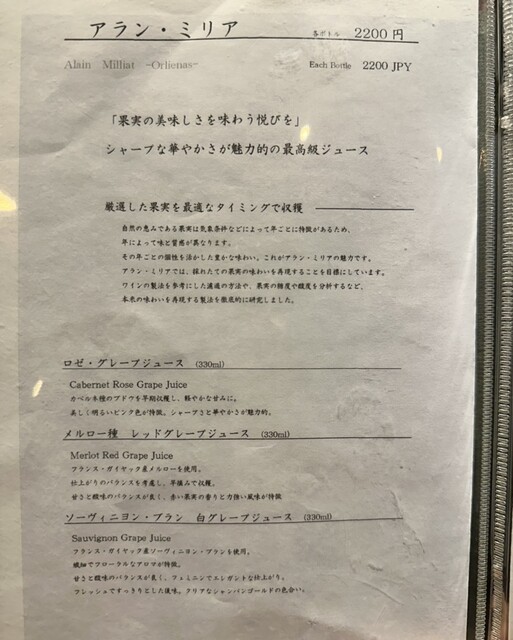 アラン・ミリア 各ボトル 2200 円
Alain Milliat -Orlienas- Each Bottle 2200 JPY
「果実の美味しさを味わう悦びを」
シャープな華やかさが魅力的の最高級ジュース
厳選した果実を最適なタイミングで収穫
自然の恵みである果実は気象条件などによって年ごとに特徴があるため、
年によって味と質感が異なります。
その年ごとの個性を活かした豊かな味わい。これがアラン・ミリアの魅力です。
アラン・ミリアでは、採れたての果実の味わいを再現することを目標にしています。
ワインの製法を参考にした濾過の方法や、果実の糖度や酸度を分析するなど、
本来の味わいを再現する製法を徹底的に研究しました。
ロゼ・グレープジュース (330ml)
Cabernet Rose Grape Juice
カベルネ種のブドウを早期収穫し、軽やかな甘みに。
美しく明るいピンク色が特徴。シャープさと華やかさが魅力的。
メルロー種 レッドグレープジュース (330ml)
Merlot Red Grape Juice
フランス・ガイヤック産メルローを使用。
仕上がりのバランスを考慮し、早摘みで収穫。
甘さと酸味のバランスが良く、赤い果実の香りと力強い風味が特徴
ソーヴィニヨン・ブラン 白グレープジュース (330ml)
Sauvignon Grape Juice
フランス・ガイヤック産ソーヴィニヨン・ブランを使用。
繊細でフローラルなアロマが特徴。
甘さと酸味のバランスが良く、フェミニンでエレガントな仕上がり。
フレッシュですっきりとした後味。クリアなシャンパンゴールドの色合い。